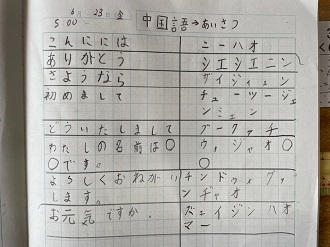 6 23 金
5:00 中国語→あいさつ
こんにには ニーハオ
ありがとう シエシエニン
さようなら ザイジィェン
初めまして チューツージェンミェン
どういたしまして ブークァチ
わたしの名前は〇 ウォシャオ〇
〇です。 〇
よろしくおねがい
します。
お元気ですか。 ズェイジンハオ
マー